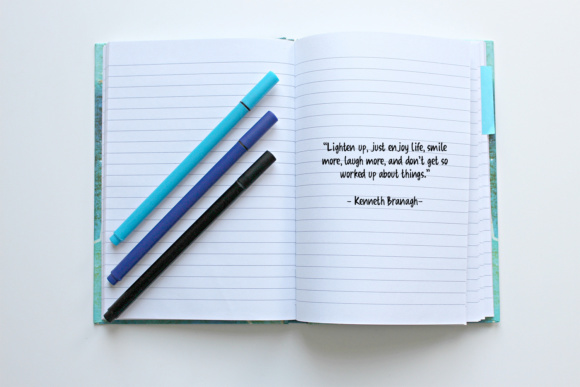 "Lighten up, just enjoy life, smile
more, laugh more, and don't get so
worked up about things."
- Kenneth Branagh-